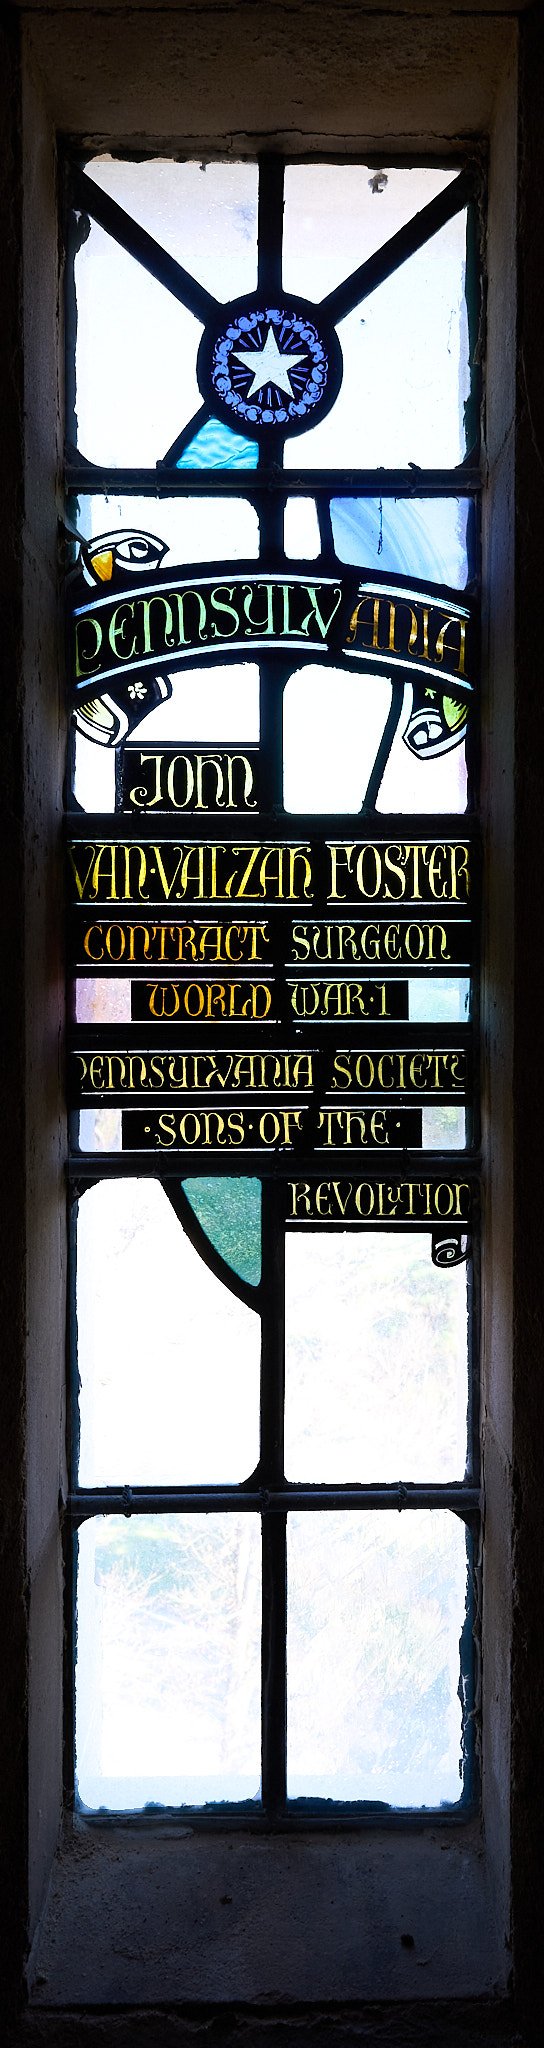 PENNSYLVANIA
JOHN
VAN·VALZAH FOSTER
CONTRACT SURGEON
WORLD WAR·1
PENNSYLVANIA SOCIETY
·SONS·OF THE·
REVOLUTION